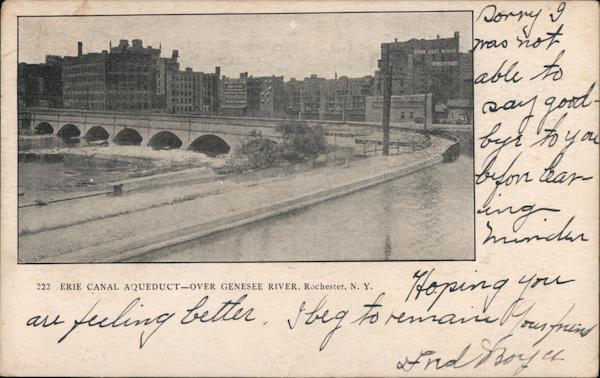 Sorry I
was not
able to
say good-
bye to you
befor leav-
ing
222 ERIE CANAL AQUEDUCT—OVER GENESEE RIVER, Rochester, N. Y.
Hoping you
are feeling better.
I beg to remain your friend
Fred